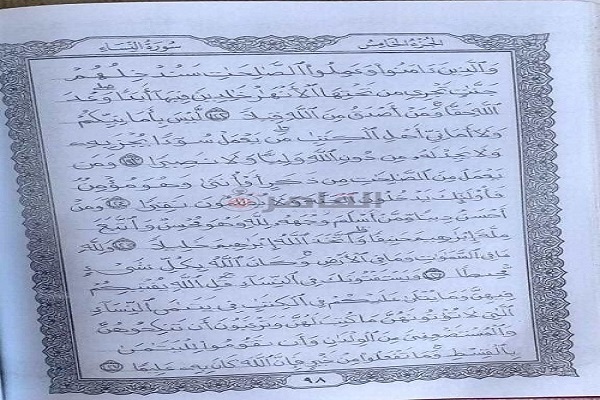 سُورَةُ النِّسَاءِ الجُزْءُ الخَامِسُ
وَالَّذِينَ ءَامَنُوا وَعَمِلُوا الصَّالِحَاتِ سَنُدْخِلُهُمْ
جَنَّاتٍ تَجْرِي مِن تَحْتِهَا الْأَنْهَارُ خَالِدِينَ فِيهَا أَبَدًا وَعْدَ
اللَّهِ حَقًّا وَمَنْ أَصْدَقُ مِنَ اللَّهِ قِيلًا ١٢٢ لَّيْسَ بِأَمَانِيِّكُمْ
وَلَا أَمَانِيِّ أَهْلِ الْكِتَابِ مَن يَعْمَلْ سُوءًا يُجْزَ بِهِ
وَلَا يَجِدْ لَهُ مِن دُونِ اللَّهِ وَلِيًّا وَلَا نَصِيرًا ١٢٣ وَمَن
يَعْمَلْ مِنَ الصَّالِحَاتِ مِن ذَكَرٍ أَوْ أُنثَى وَهُوَ مُؤْمِنٌ
فَأُولَئِكَ يَدْخُلُونَ نَقِيرًا ١٢٤ وَمَنْ
أَحْسَنُ دِينًا مِّمَّنْ أَسْلَمَ وَجْهَهُ لِلَّهِ وَهُوَ مُحْسِنٌ وَاتَّبَعَ
مِلَّةَ إِبْرَاهِيمَ حَنِيفًا وَاتَّخَذَ اللَّهُ إِبْرَاهِيمَ خَلِيلًا ١٢٥ وَلِلَّهِ
مَا فِي السَّمَاوَاتِ وَمَا فِي الْأَرْضِ وَكَانَ اللَّهُ بِكُلِّ شَيْءٍ
مُّحِيطًا ١٢٦ وَيَسْتَفْتُونَكَ فِي النِّسَاءِ قُلِ اللَّهُ يُفْتِيكُمْ
فِيهِنَّ وَمَا يُتْلَى عَلَيْكُمْ فِي الْكِتَابِ فِي يَتَامَى النِّسَاءِ
الَّتِي لَا تُؤْتُونَهُنَّ مَا كُتِبَ لَهُنَّ وَتَرْغَبُونَ أَن تَنكِحُوهُنَّ
وَالْمُسْتَضْعَفِينَ مِنَ الْوِلْدَانِ وَأَن تَقُومُوا لِلْيَتَامَى
بِالْقِسْطِ وَمَا تَفْعَلُوا مِنْ خَيْرٍ فَإِنَّ اللَّهَ كَانَ بِهِ عَلِيمًا ١٢٧
٩٨